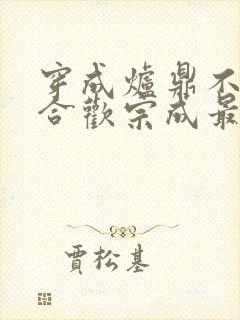 穿成爐鼎不
合歡宗成最
賈松基